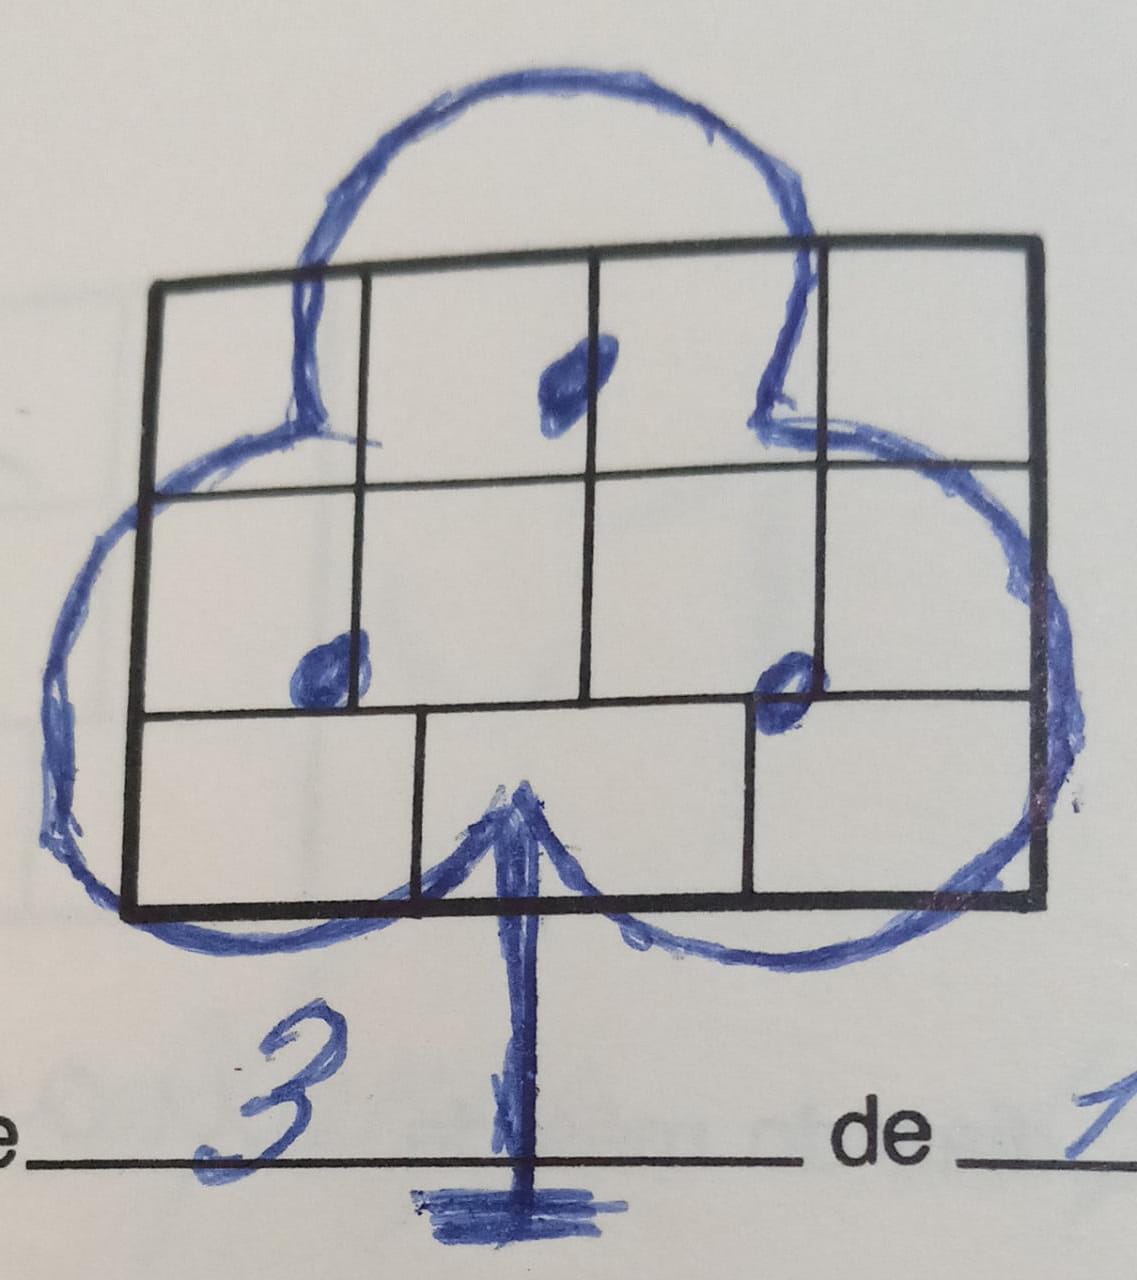 e 3 de 1